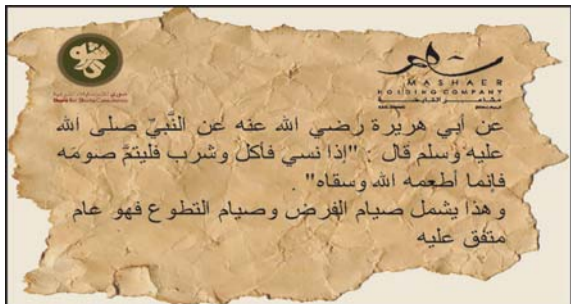 شورى
MASHAER
HOLDING COMPANY
مشاعر القابضة
عن أبي هريرة رضي الله عنه عن النَّبيّ صلى الله
عليه وسلم قال : "إذا نسي فأكل وشرب فليتمَّ صومَه
فإنما أطعمه الله وسقاه" .
وهذا يشمل صيام الفرض وصيام التطوع فهو عام
متفق عليه